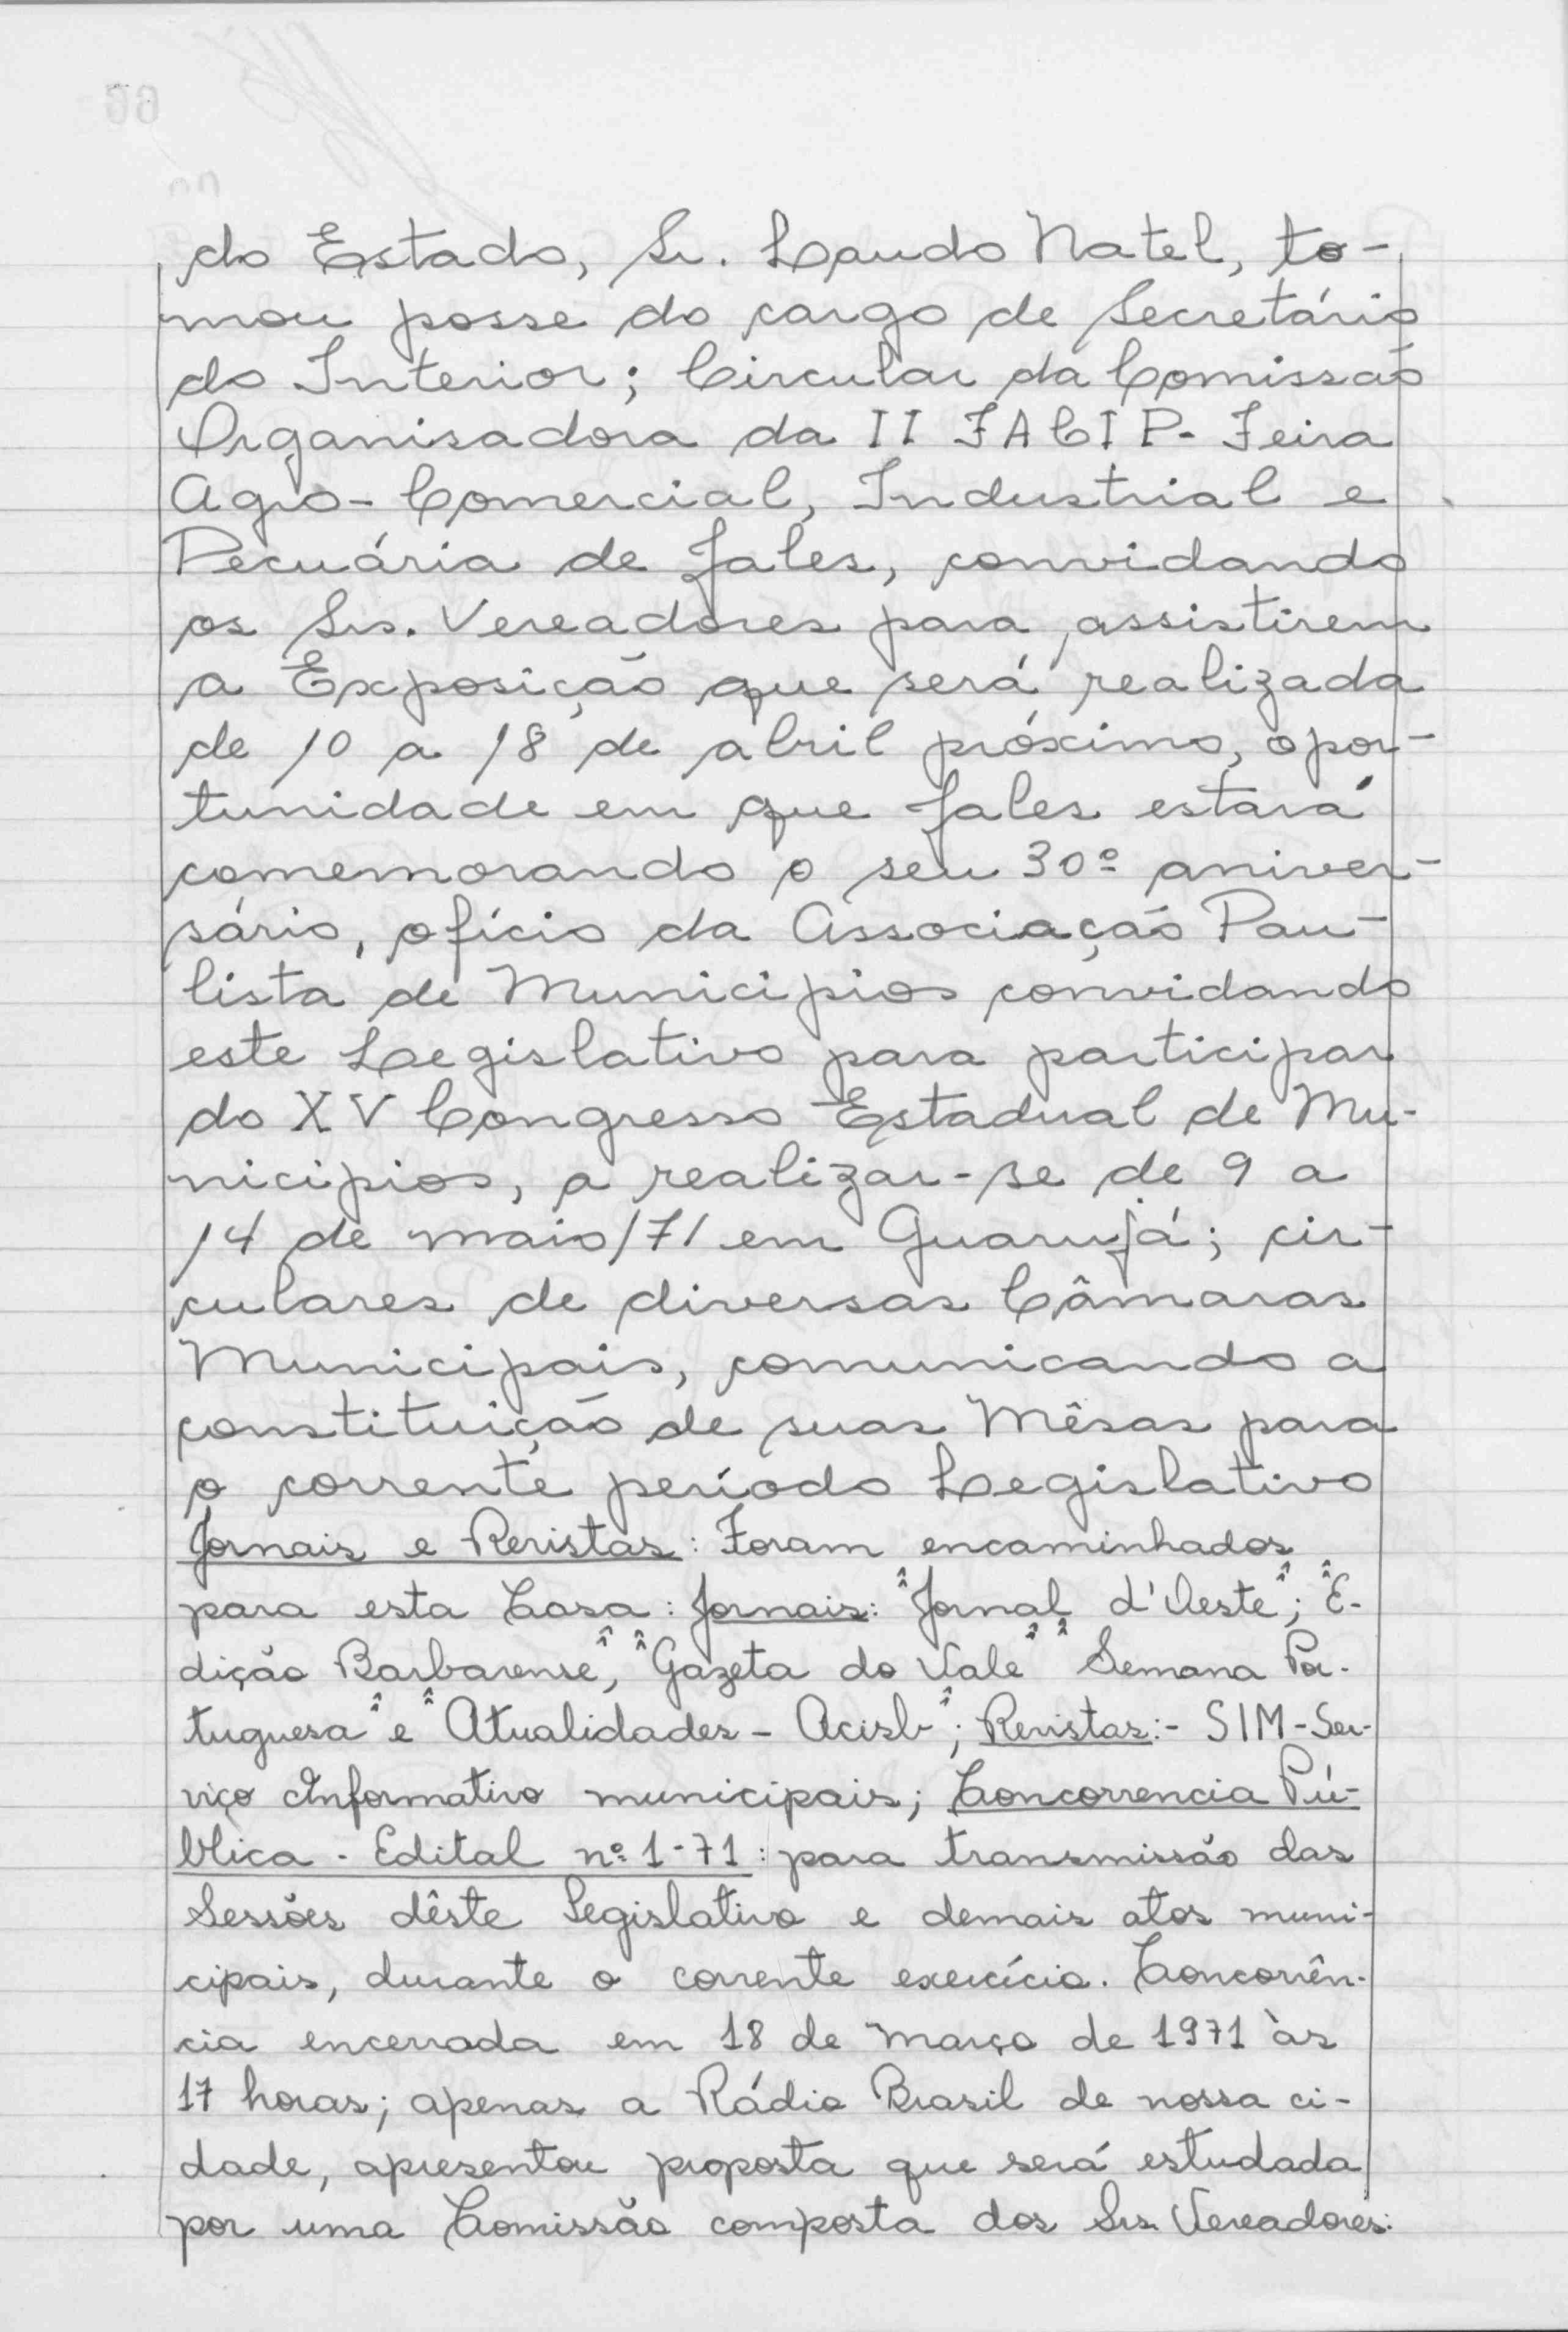 do Estado, Sr. Laudo Natel, to-
mou posse do cargo de Secretário
do Interior; Circular da Comissão
Organisadora da II FACIP- Feira
Agro-Comercial, Industrial e
Pecuária de Jales, convidando
os Srs. Vereadores para assistirem
a Exposição que será realizada
de 10 a 18 de abril próximo, opor-
tunidade em que Jales estará
comemorando o seu 30º aniver-
sário, ofício da Associação Pau-
lista de Municipios convidando
este Legislativo para participar
do XV Congresso Estadual de Mu-
nicipios, a realizar-se de 9 a
14 de maio/71 em Guarujá; cir-
culares de diversas Câmaras
Municipais, comunicando a
constituição de suas Mêsas para
o corrente período Legislativo
Jornais e Revistas: Foram encaminhados
para esta Casa: Jornais: "Jornal d'Oeste"; "E-
dição Barbarense", "Gazeta do Vale" "Semana Por-
tuguesa" e "Atualidades - Acisb"; Revistas:- SIM-Ser-
viço Informativo municipais; Concorrencia Pú-
blica - Edital nº 1-71: para transmissão das
Sessões dêste Legislativo e demais atos muni-
cipais, durante o corrente exercício. Concorrên-
cia encerrada em 18 de Março de 1971 às
17 horas; apenas a Rádio Brasil de nossa ci-
dade, apresentou proposta que será estudada
por uma Comissão composta dos Srs. Vereadores: